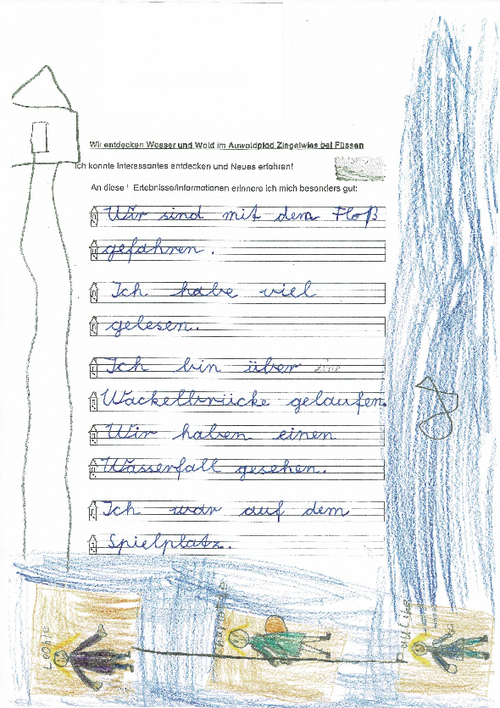 Wir entdecken Wasser und Wald im Auwaldpfad Ziegelwies bei Füssen
Ich konnte Interessantes entdecken und Neues erfahren!
An diese Erlebnisse/Informationen erinnere ich mich besonders gut:
Wir sind mit dem Floß
gefahren.
Ich habe viel
gelesen.
Ich bin über eine
Wackelbrücke gelaufen.
Wir haben einen
Wasserfall gesehen.
Ich war auf dem
Spielplatz.